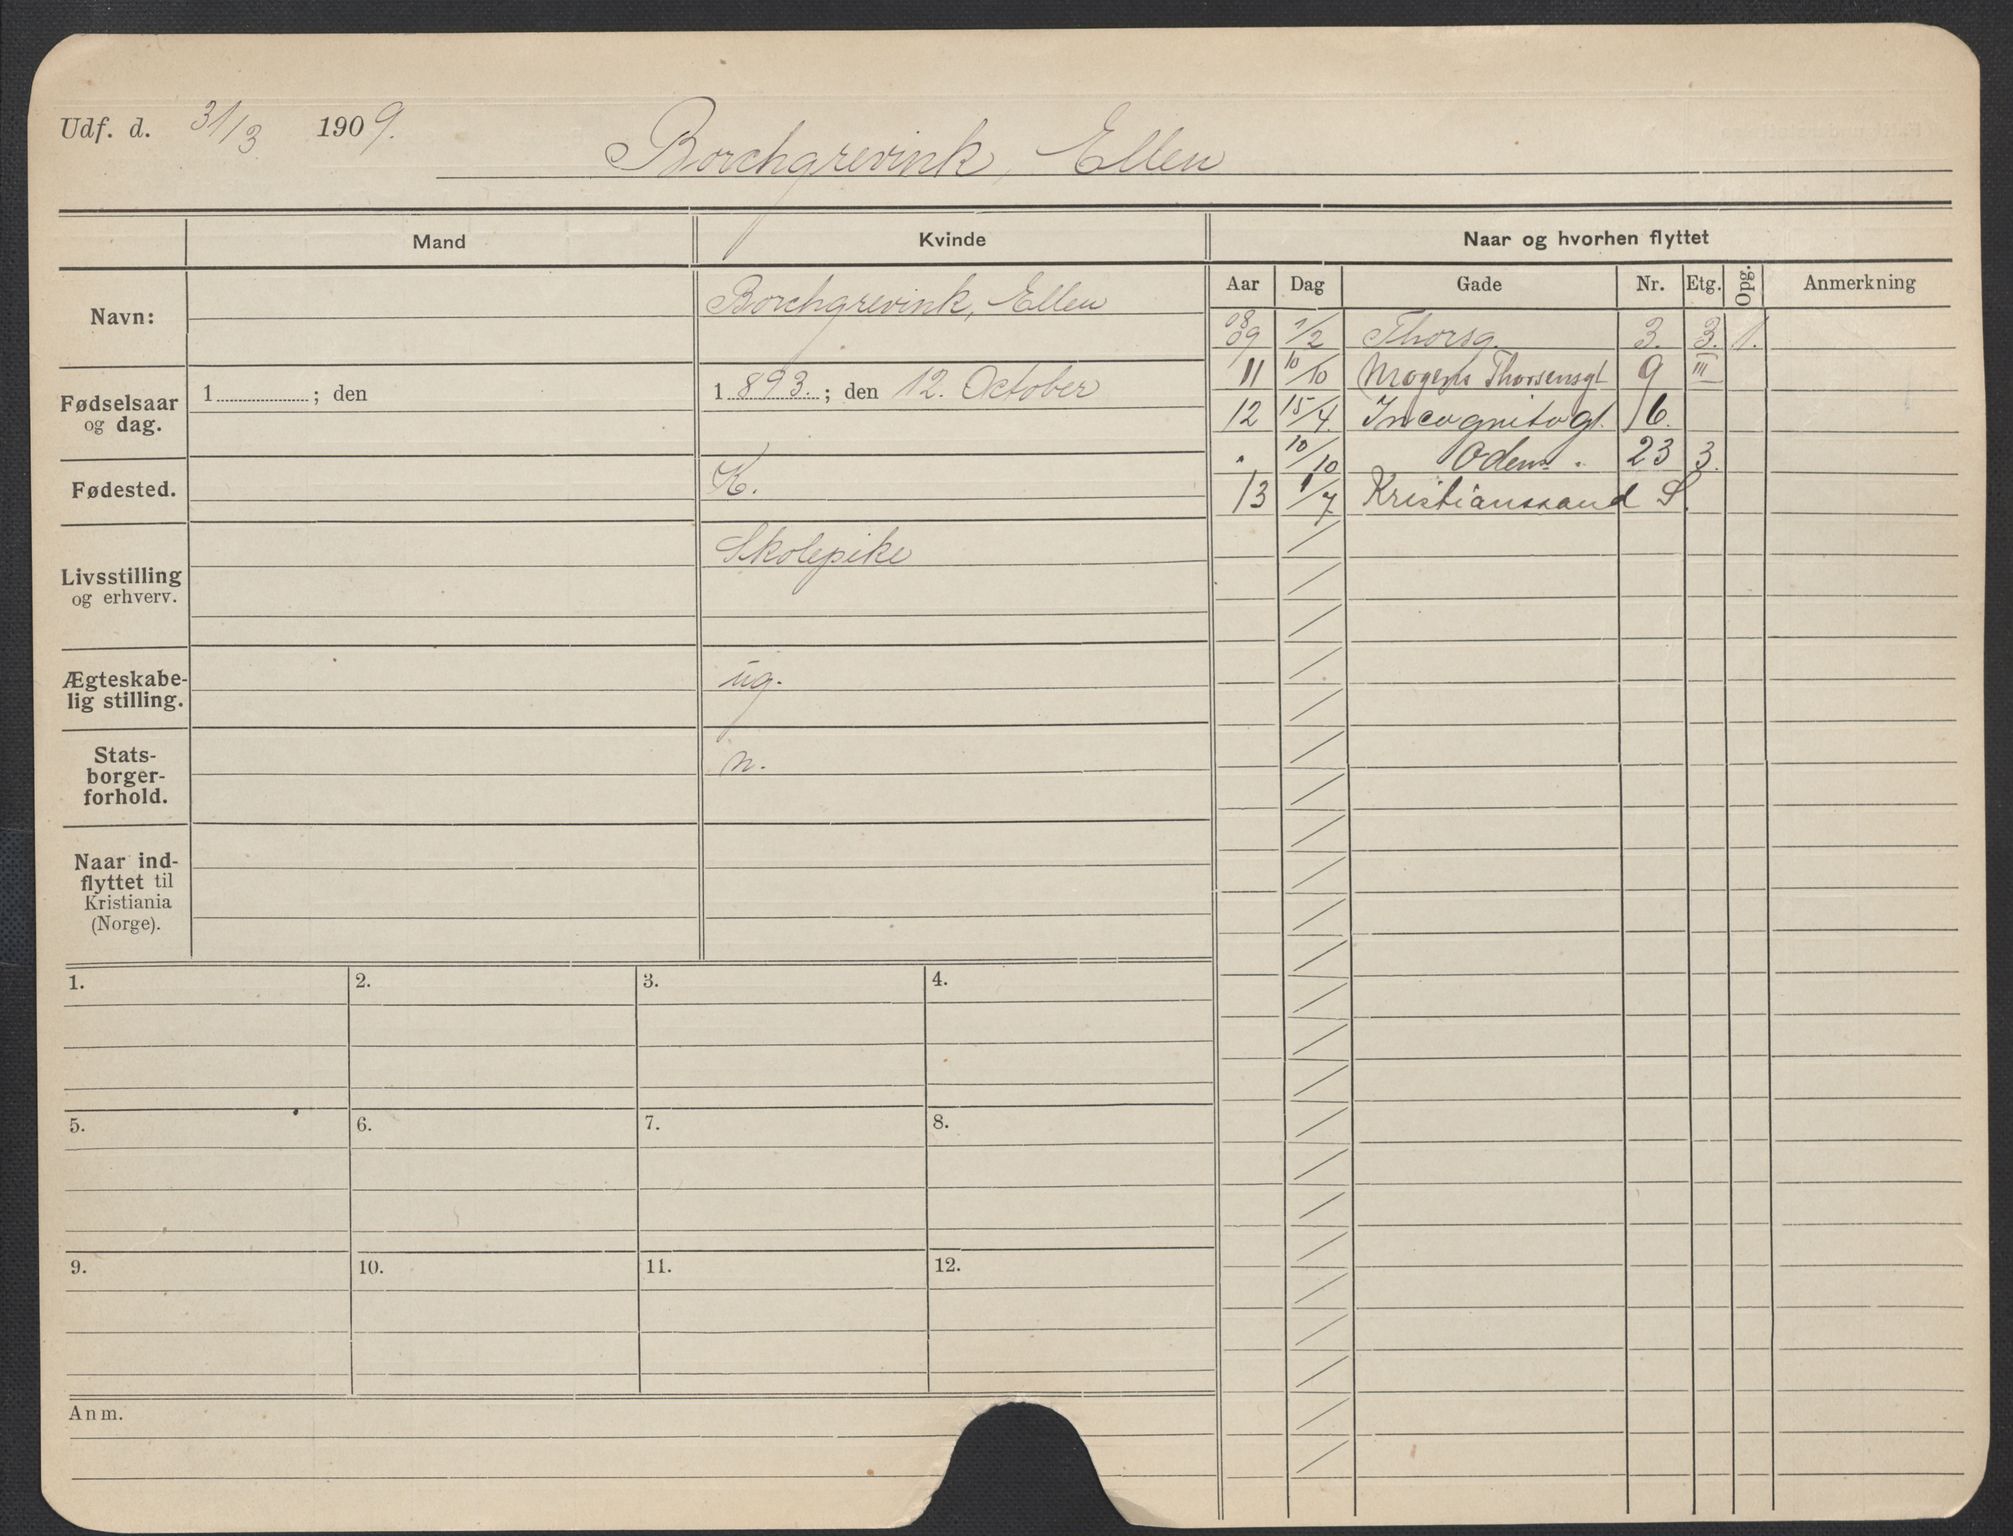 Udf. d. 31/3 1909.
Borchgrevink, Ellen
Mand Kvinde Naar og hvorhen flyttet
Aar Dag Gade Nr. Etg. Opg. Anmerkning
Navn: Borchgrevink, Ellen
Fødselsaar og dag. 1 ; den 1893. ; den 12. October
Fødested. K.
Livsstilling og erhverv. Skolepike
Ægteskabe-
lig stilling. ug.
Stats-
borger-
forhold. n.
Naar ind-
flyttet til
Kristiania
(Norge).
08
09 1/2 Thorsg. 3. 3. 1.
11 10/10 Mogens Thorsensgt 9 III
12 15/4. Incognitogt. 16.
" 10/10 Odens " 23 3.
13 1/7 Kristianssand S.
1. 2. 3. 4.
5. 6. 7. 8.
9. 10. 11. 12.
Anm.